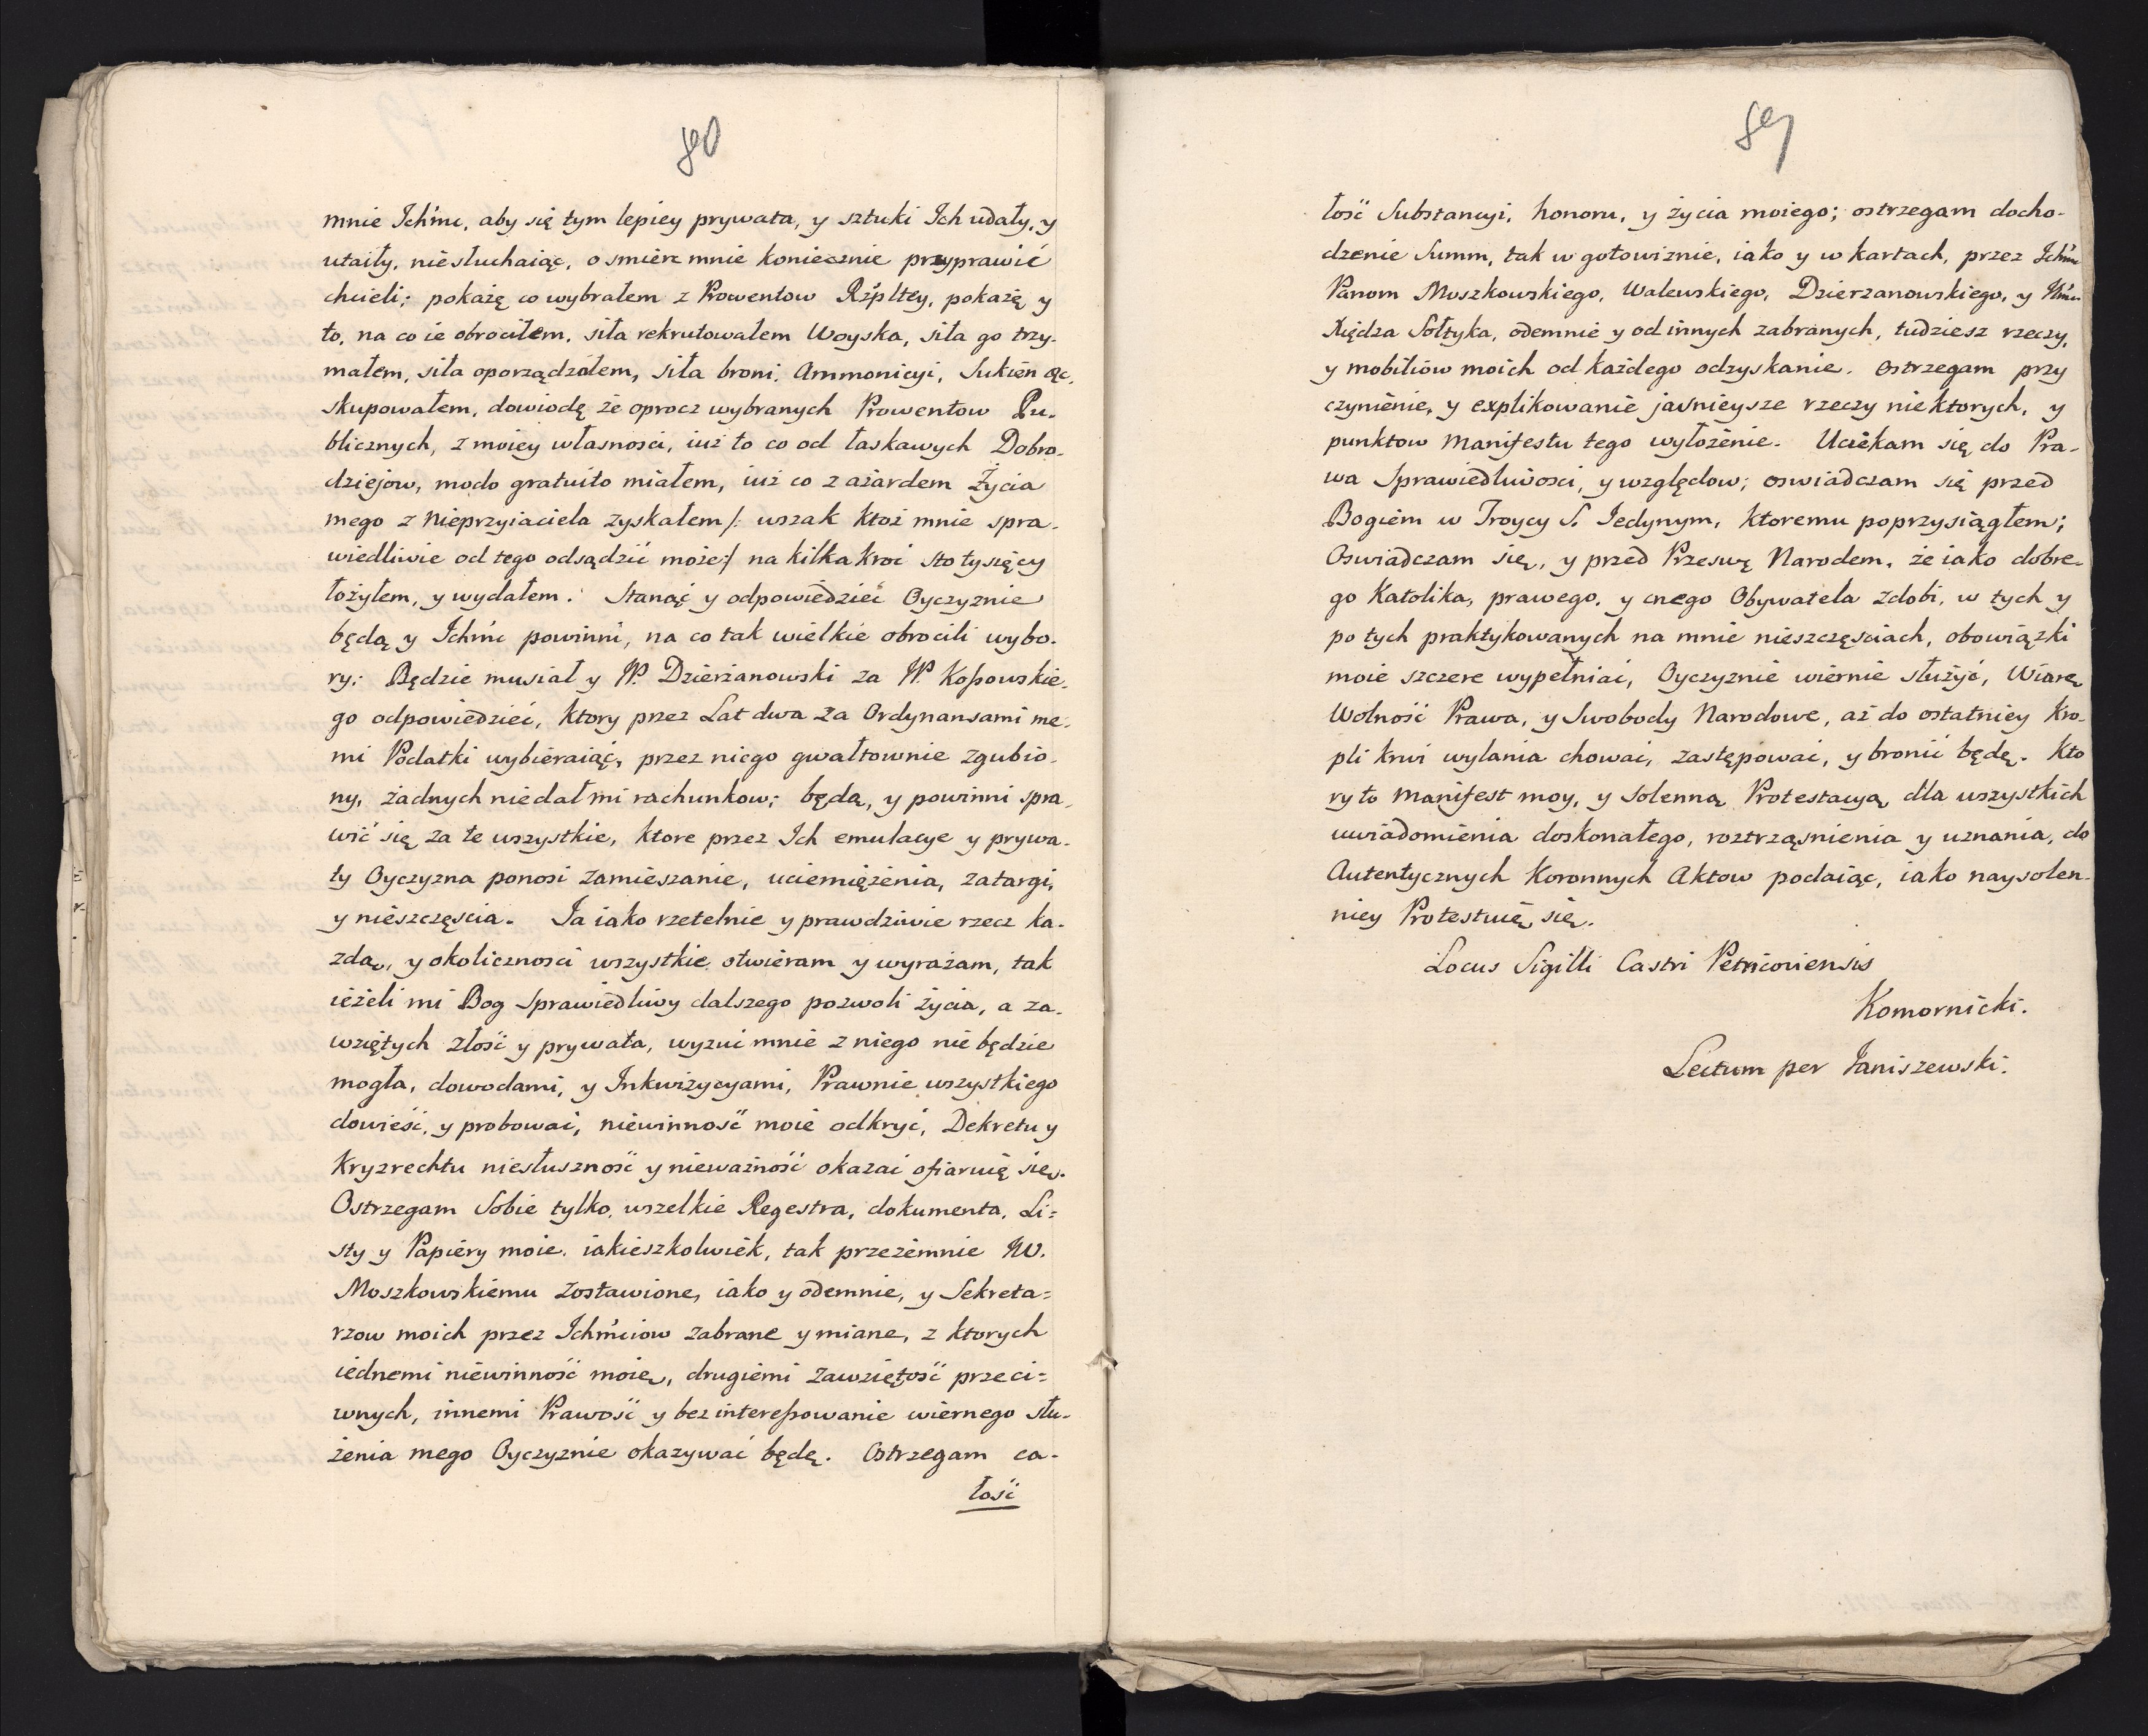 80
mnie Ichm̃c, aby się tym lepiey prywata, y sztuki Ich udały, y
utaiły, niesłuchaiąc, o smierc mnie koniecznie przyprawić
chcieli; pokażę co wybrałem z Prowentow Rzpltey, pokażę y
to, na co ie obrociłem, siła rekrutowałem Woyska, siła go trzy-
małem, siła oporządzałem, siła broni, Ammonicyi, Sukien &c,
skupowałem, dowiodę że oprocz wybranych Prowentow Pu-
blicznych, z moiey własnosci, iuż to co od łaskawych Dobro-
dziejow, modo gratuito miałem, iuż co z ażardem Życia
mego z Nieprzyiaciela zyskałem /: wszak ktoż mnie spra-
wiedliwie od tego odsądzić może :/ na kilka kroć sto tysięcy
łożyłem, y wydałem. Stanąć y odpowiedzieć Oyczyznie
będą y Ichm̃c powinni, na co tak wielkie obrocili wybo-
ry: Będzie musiał y JP. Dzierżanowski za JP. Koſsowskie-
go odpowiedzieć, ktory przez Lat dwa za Ordynansami me-
mi Podatki wybieraiąc, przez niego gwałtownie zgubio-
ny, żadnych niedał mi rachunkow; będą, y powinni spra-
wić się za te wszystkie, ktore przez Ich emulacye y prywa-
ty Oyczyzna ponosi zamieszanie, uciemiężenia, zatargi,
y nieszczęscia. Ia iako rzetelnie y prawdziwie rzecz ka-
żdą, y okolicznosci wszystkie otwieram y wyrażam, tak
ieżeli mi Bog Sprawiedliwy dalszego pozwoli życia, a za-
wziętych złość y prywata, wyzuć mnie z niego nie będzie
mogła, dowodami, y Inkwizycyami, Prawnie wszystkiego
dowieść, y probować, niewinność moie odkryć, Dekretu y
Kryzrechtu niesłuszność y nieważność okazać ofiaruię się.
Ostrzegam Sobie tylko, wszelkie Regestra, dokumenta, Li=
sty y Papiery moie, iakieszkolwiek, tak przezemnie JW.
Moszkowskiemu zostawione, iako y odemnie, y Sekreta=
rzow moich przez Ichm̃ciow zabrane y miane, z ktorych
iednemi niewinność moię, drugiemi zawziętość przeci=
wnych, innemi Prawość y bezintereſsowanie wiernego słu-
żenia mego Oyczyznie okazywać będę. Ostrzegam ca-
łość
89
łość Substancyi, honoru, y życia moiego; ostrzegam docho-
dzenie Summ, tak w gotowiznie, iako y w kartach, przez Ichm̃
Panom Moszkowskiego, Walewskiego, Dzierzanowskiego, y
Xiędza Sołtyka, odemnie y od innych zabranych, tudziesz rzeczy,
y mobiliow moich od każdego odzyskanie. Ostrzegam przy
czynienie, y explikowanie jasnieysze rzeczy niektorych, y
punktow Manifestu tego wyłożenie. Uciekam się do Pra-
wa Sprawiedliwosci, y względow; oswiadczam się przed
Bogiem w Troycy S. Iedynym, ktoremu poprzysiągłem;
Oswiadczam się, y przed Przeswę Narodem, że iako dobre-
go Katolika, prawego, y cnego Obywatela zdobi, w tych y
po tych praktykowanych na mnie nieszczęsciach, obowiązki
moie szczere wypełniać, Oyczyznie wiernie służyć, Wiarę
Wolność Prawa, y Swobody Narodowe, aż do ostatniey kro-
pli krwi wylania chować, zastępować, y bronić będę. Kto
ry to Manifest moy, y solenną Protestacyą, dla wszystkich
uwiadomienia doskonałego, roztrząsnienia y uznania, do
Autentycznych Koronnych Aktow podaiąc, iako naysolen-
niey Protestuię się.
Locus Sigilli Castri Petricoviensis
Komornicki.
Lectum per Ianiszewski.